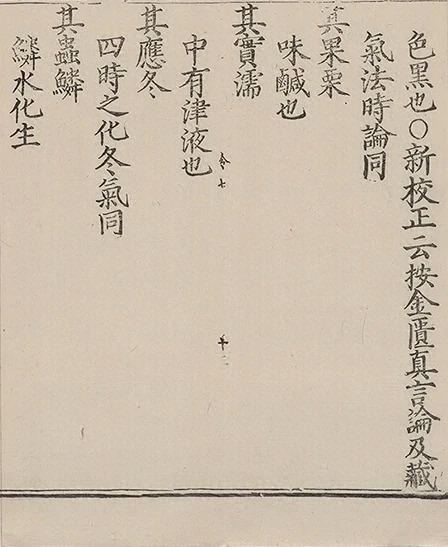 色黑也○新校正云按金匱真言論及藏
氣法時論同
其果栗
味鹹也
其實濡
中有津液也
其應冬
四時之化冬氣同
其蟲鱗
鱗水化生